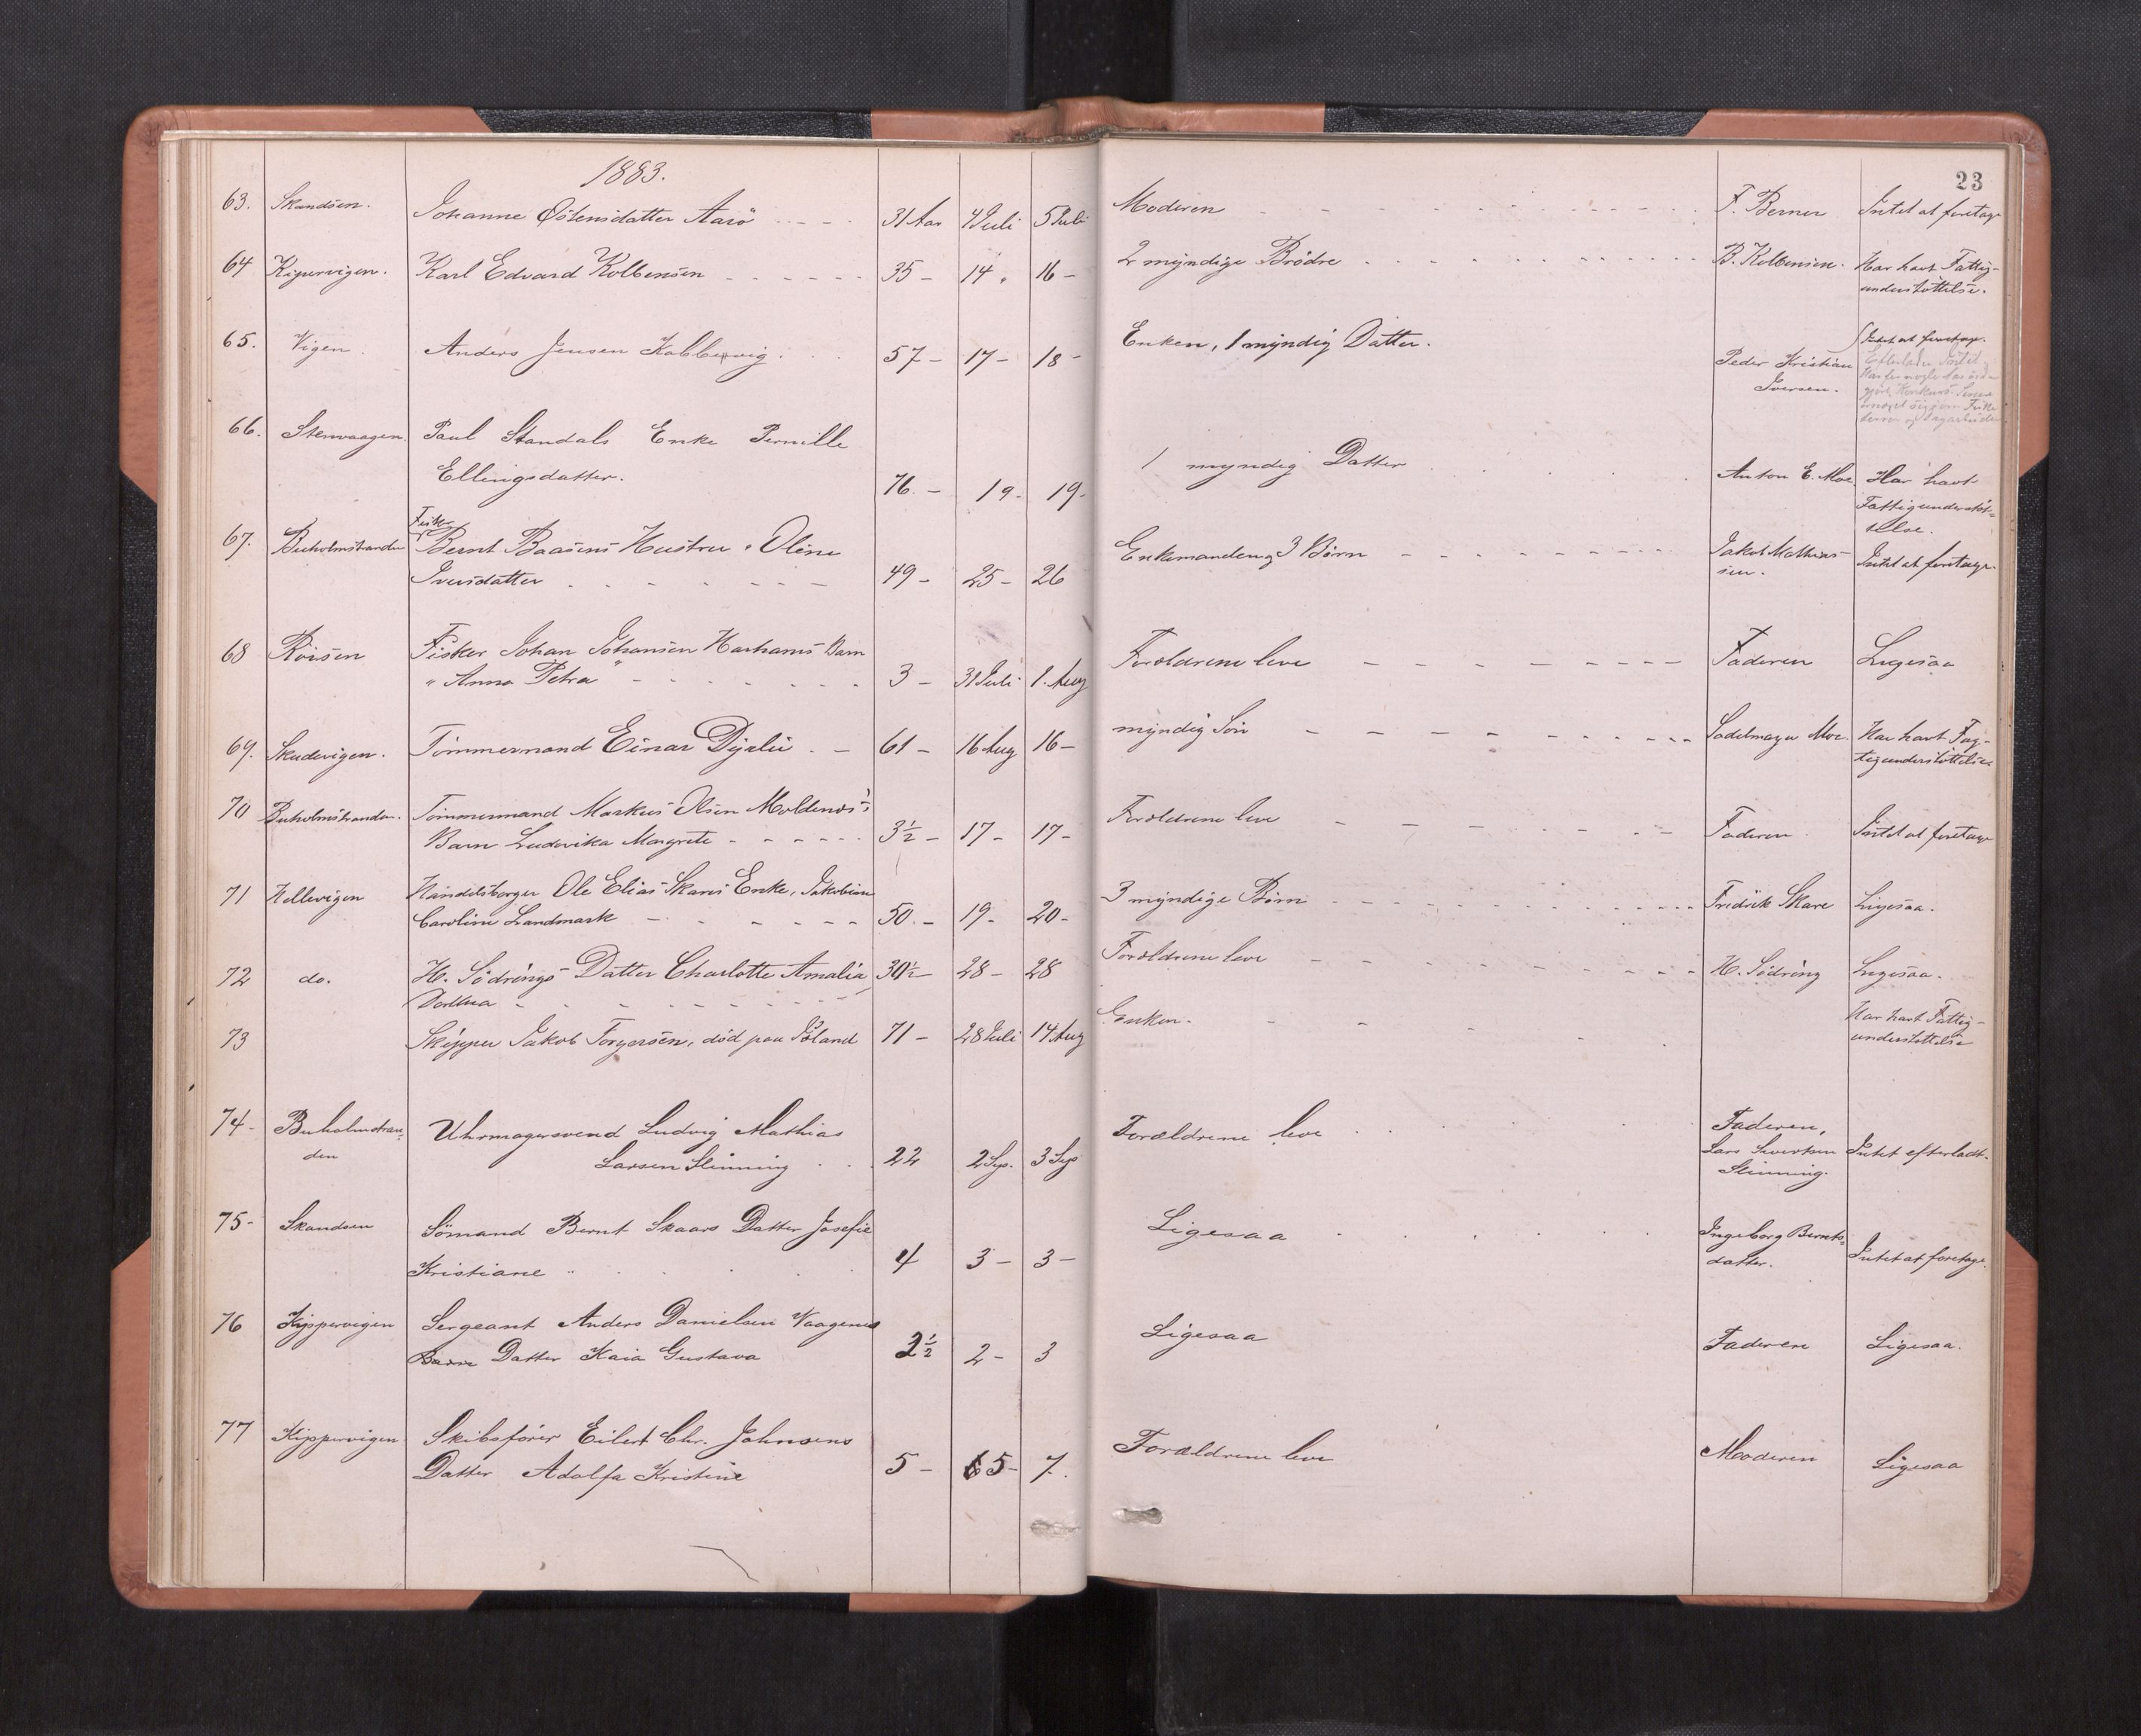 1883.
23
63. Skandsen. Johanne Östensdatter Aarö 31 Aar 4 Juli 5 Juli Moderen F. Berner Intet at foretage
64 Kipervigen. Karl Edvard Kolbensen 35 - 14 " 16 - 2 myndige Brödre B. Kolbensen. Har havt Fattig-
understöttelse.
65. Vigen. Anders Jensen Kobbervig. 57 - 17 - 18 - Enken, 1 myndig Datter. Peder Kristian Intet at foretage.
Iversen.
Efterlader Intet
66. Stenvaagen. Paul Standals Enke Pernille
Ellingsdatter. 76. - 19 - 19 - 1 myndig Datter Anton E. Moe Har havt
Fattigunderstöt=
telse.
67. Buholmstranden Fisker Bernt Baasens Hustru " Oline
Iversdatter 49 - 25 - 26 Enkemanden og 3 Börn Jakob Mathias- Intet at foretage.
sen.
68 Röisen Fisker Johan Johansen Harhams Barn
" Anna Petra " 3 - 31 Juli 1. Aug Forældrene leve Faderen Ligesaa
69. Skudevigen. Tömmermand Einar Dyrlie - 61 - 16 Aug 16 - myndig Sön Sadelmager Moe. Har havt Fat-
tigunderstöttelse
70 Buholmstranden. Tömmermand Markus Olsen Moldenæs's
Barn Ludovika Margrete 3½ - 17 - 17 - Forældrene leve Faderen Intet at foretage
71 Hellevigen Handelsborger Ole Elias Skares Enke, Jakobine
Caroline Landmark 50 - 19 - 20 - 3 myndige Börn Fredrik Skare Ligesaa.
72 do. H. Södrings Datter Charlotte Amalia 30½ - 28 - 28 Forældrene leve H. Södring Ligesaa.
Dorthea
73 Skipper Jakob Torgersen, död paa Island 71 - 28 Juli 14 Aug Enken. Har havt Fattig-
understöttelse
74 - Buholmstran= Uhrmagersvend Ludvig Mathias
den Larsen Slinning 22 2 Sep. 3 Sep Forældrene leve Faderen,
Lars Sivertsen Intet efterladt.
Slinning.
75 - Skandsen Sömand Bernt Skaars Datter Josefie
Kristiane 4 3 - 3 - Ligesaa Ingeborg Bernts=
datter. Intet at foretage.
76 Kippervigen Sergeant Anders Danielsen Vaagenes
Barn Datter Kaia Gustava 2½ 2 - 3 Ligesaa Faderen Ligesaa.
77 Kippervigen Skibsförer Eilert Chr. Johnsens
Datter Adolfa Kristine 5 - 5 - 7. Forældrene leve Moderen Ligesaa